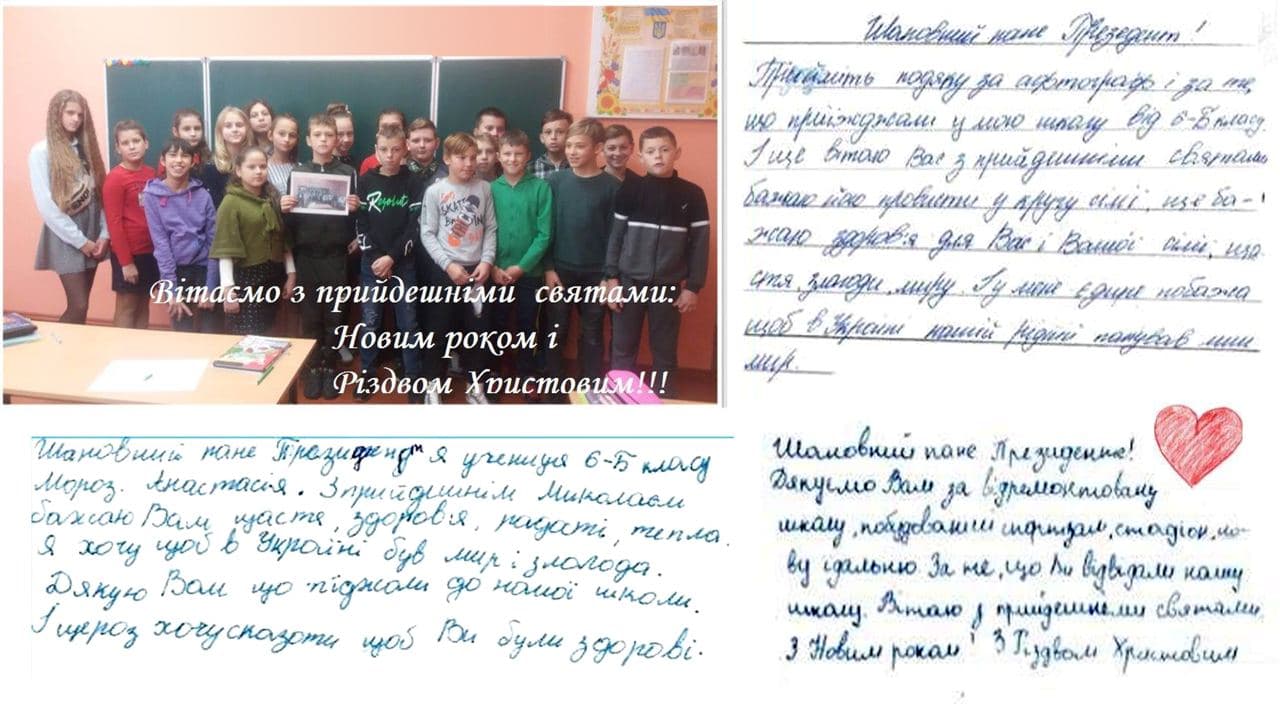 Вітаємо з прийдешніми святами:
Новим роком і
Різдвом Христовим!!!
Resolut
SKATE
Шановний пане Президент!
Прийміть подяку за афтограф і за те,
що приїжджали у мою школу від 6-Б класу.
І ще вітаю Вас з прийдешніми святами
бажаю його провисти у кругу сімї, ще ба-
жаю здоров'я для Вас і Вашої сімї, ща
стя, злагоди, миру. І у мене єдине побажа
щоб в Україні нашій рідній панував лиш
мир.
Шановний пане Президент я учениця 6-Б класу
Мороз. Анастасія. З прийдешнім Миколаєм
бажаю Вам щастя, здоров'я, тепла.
Я хочу щоб в Україні був мир і злагода.
Дякую Вам що до нашої школи.
І щероз хочу сказати щоб Ви були здорові.
Шановний пане Президенте!
Дякуємо Вам за відремонтовану
школу, побудований спортзал, стадіон, но-
ву їдальню. За те, що Ви відвідали нашу
школу. Вітаю з прийдешнеми святами.
З Новим роком! З Різдвом Христовим